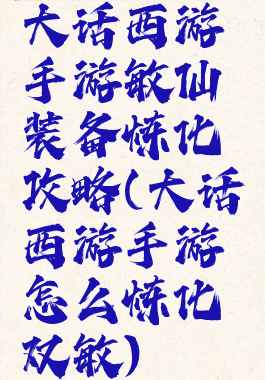 大话西游
手游敏仙
装备炼化
攻略(大话
西游手游
怎么炼化
双敏)